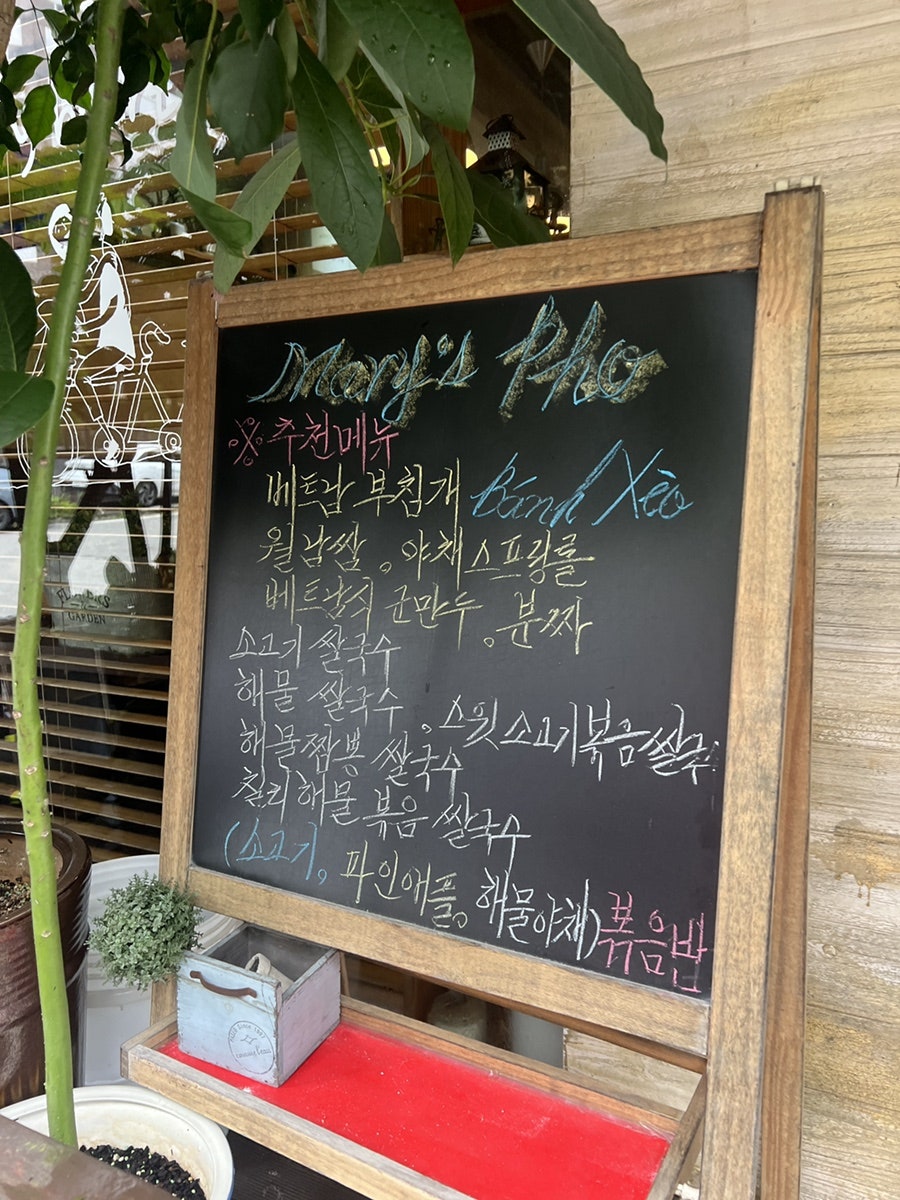 Mary's Pho
※추천메뉴
베트남 부침개 Bánh Xèo
월남쌈. 야채스프링롤
베트남식 군만두. 분짜
소고기 쌀국수
해물 쌀국수
. 스윗소고기볶음쌀국수
해물짬뽕 쌀국수
칠리해물 볶음 쌀국수
(소고기, 파인애플. 해물야채)볶음밥
GARDEN